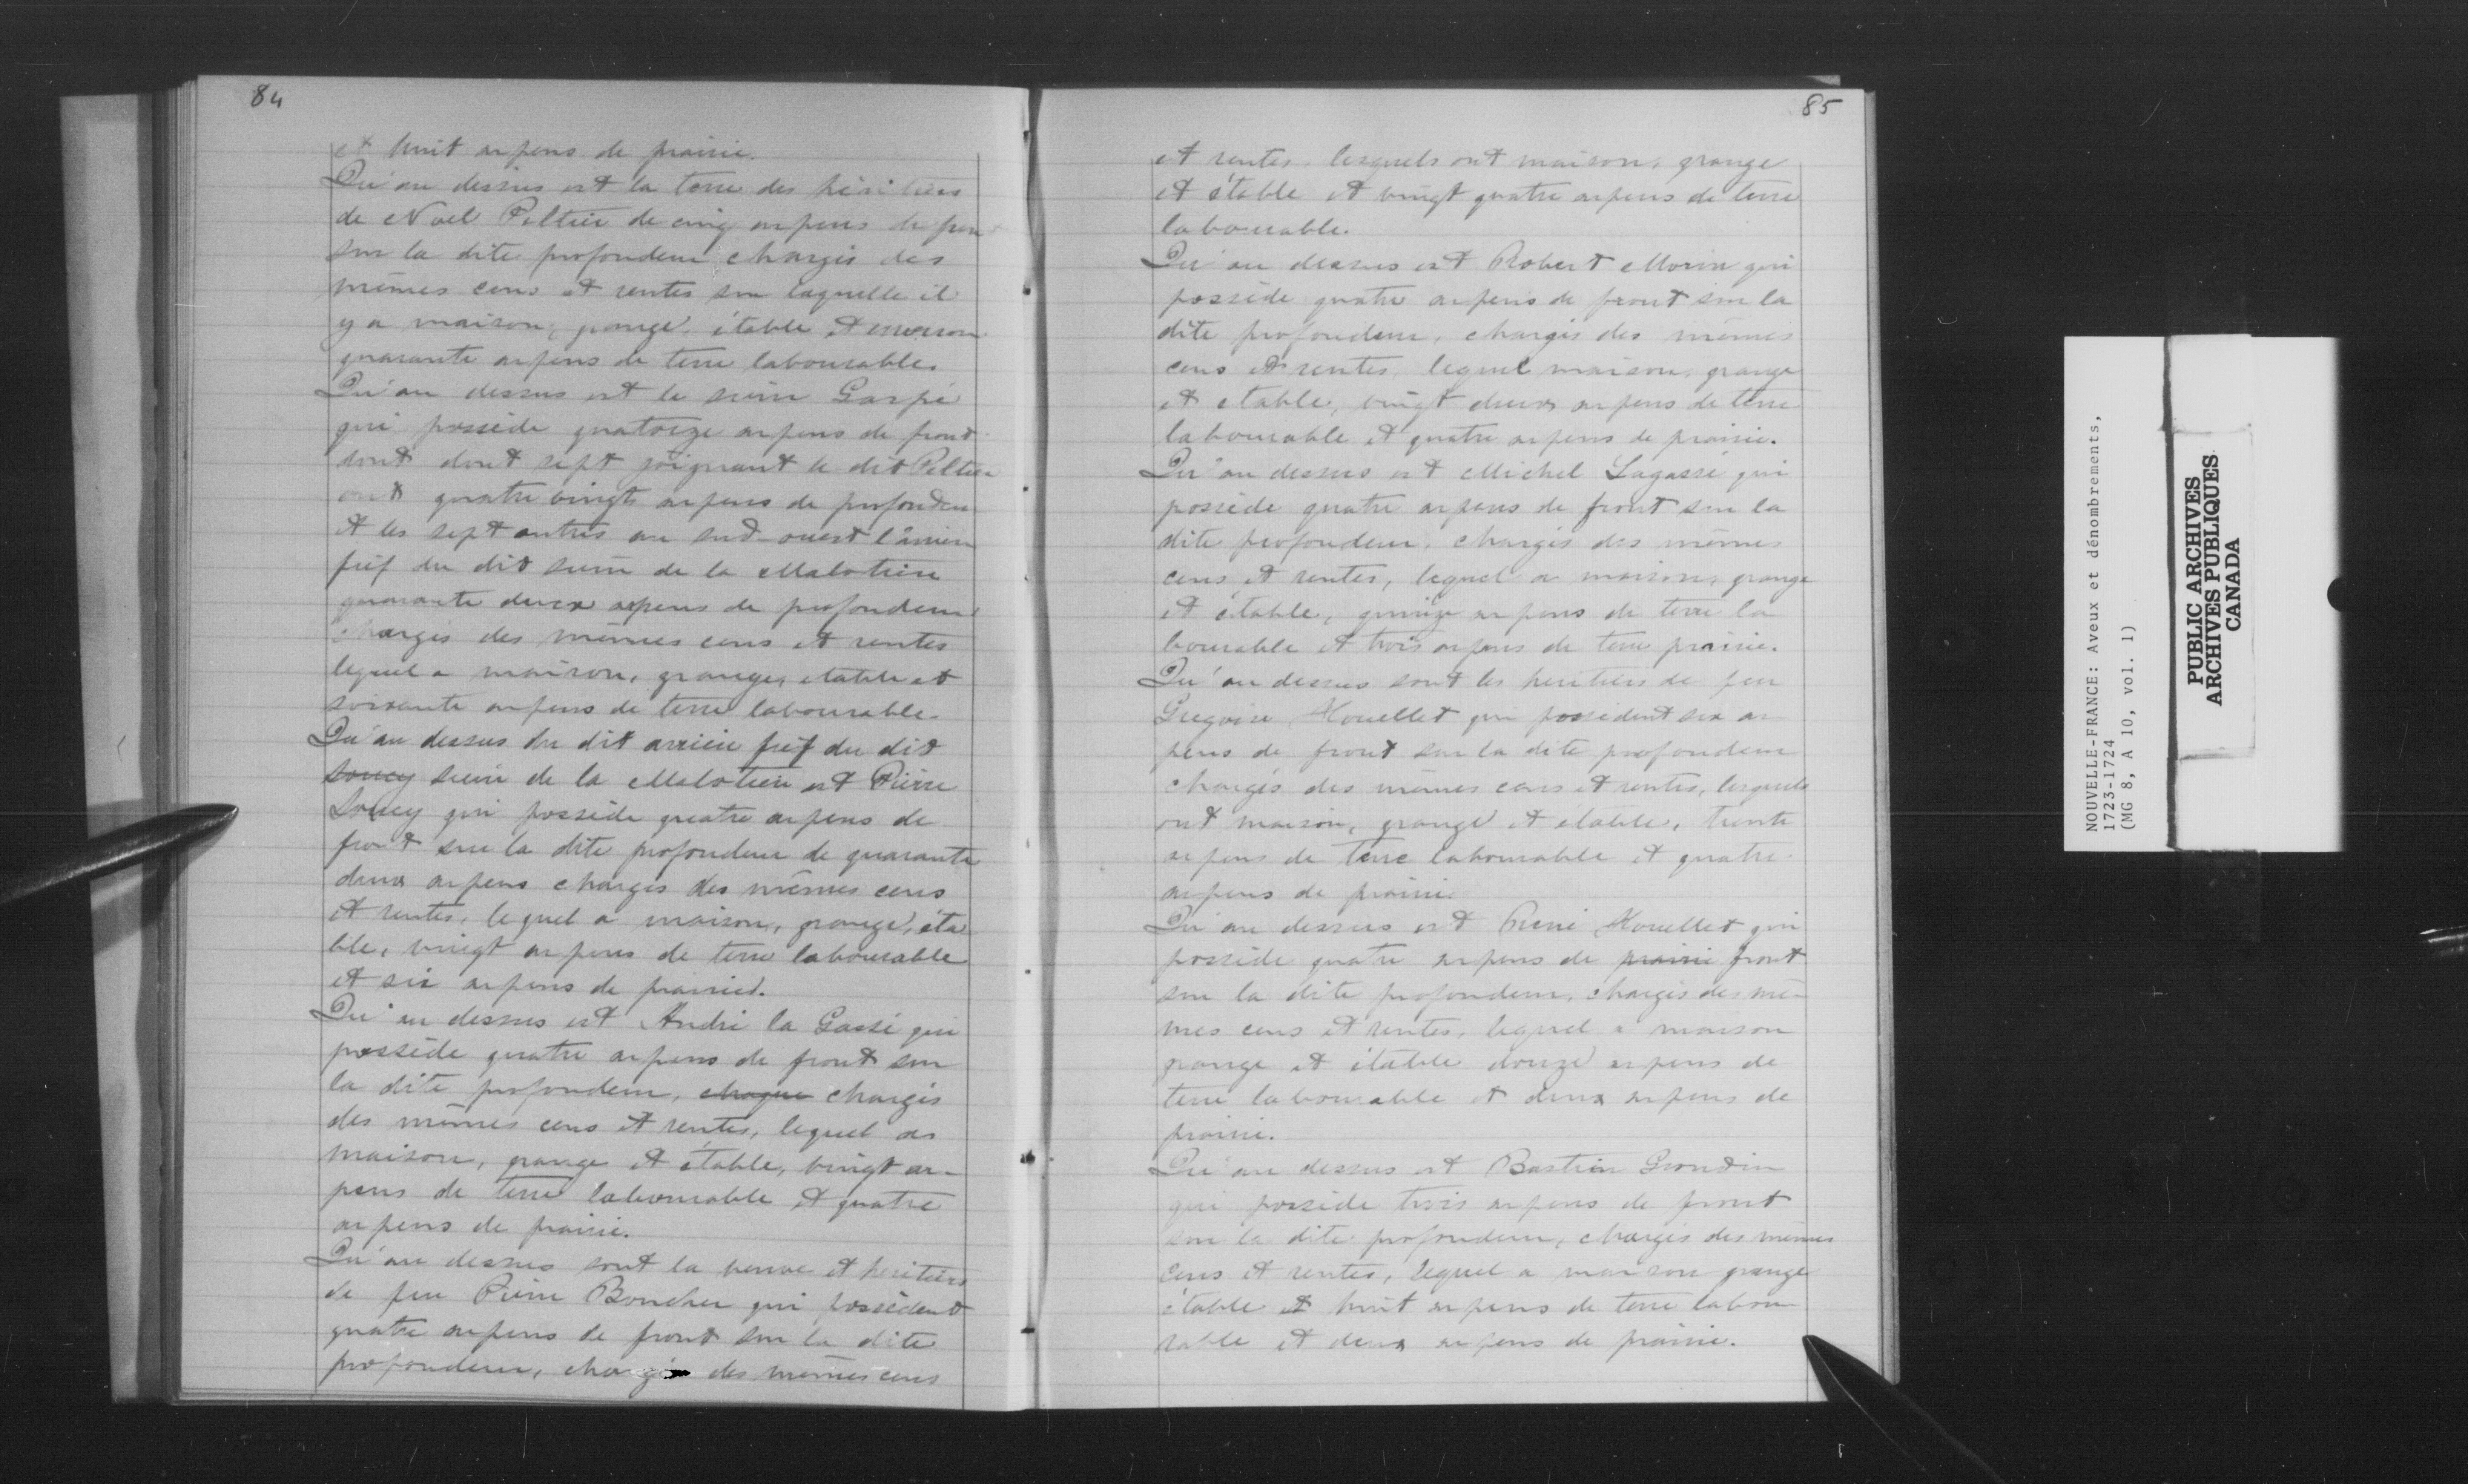 84
et huit arpens de prairie.
Qu'au dessus est la terre des héritiers
de Noel Peltier de cinq arpens de front
sur la dite profondeur chargés des
mêmes cens et rentes sur laquelle il
y a maison, grange, étable et environ
quarante arpens de terre labourable.
Qu'au dessus est le sieur Gaspé
qui possède quatorze arpens de front
dont dont sept joignant le dit Peltier
ont quatre vingts arpens de profondeur
et les sept autres au sud-ouest l'arrière
fief du dit sieur de la Malotière
quarante deux arpens de profondeur
chargés des mêmes cens et rentes
lequel a maison, grange, etable et
soixante arpens de terre labourable.
Qu'au dessus du dit arrière fief du dit
Soucy sieur de la Malotière est Pierre
Soucy qui possède quatre arpens de
front sur la dite profondeur de quarante
deux arpens chargés des mêmes cens
et rentes, lequel a maison, grange, éta
ble, vingt arpens de terre labourable
et six arpens de prairie.
Qu'au dessus est André la Gassé qui
possède quatre arpens de front sur
la dite profondeur, chaque chargés
des mêmes cens et rentes, lequel a
maison, grange et étable, vingt ar-
pens de terre labourable et quatre
arpens de prairie.
Qu'au dessus sont la veuve et heritiers
de feu Pierre Boucher qui possèdent
quatre arpens de front sur la dite
profondeur, chargés des mêmes cens
85
et rentes, lesquels ont maison, grange
et étable et vingt quatre arpens de terre
labourable.
Qu'au dessus est Robert Morin qui
possède quatre arpens de front sur la
dite profondeur, chargés des mêmes
cens et rentes, lequel maison, grange
et etable, vingt deux arpens de terre
labourable et quatre arpens de prairie.
Qu'au dessus est Michel Lagassé qui
possède quatre arpens de front sur la
dite profondeur, chargés des mêmes
cens et rentes, lequel a maison, grange
et étable, quinze arpens de terre la
bourable et trois arpens de terre prairie.
Qu'au dessus sont les heritiers de feu
Gregoire Houellet qui possèdent six ar
pens de front sur la dite profondeur
chargés des mêmes cens et rentes, lesquels
ont maison, grange et étable, trente
arpens de terre labourable et quatre
arpens de prairie
Qu'au dessus est René Houellet qui
possède quatre arpens de prairie front
sur la dite profondeur, chargés des mê-
mes cens et rentes, lequel a maison
grange et étable douze arpens de
terre labourable et deux arpens de
prairie.
Qu'au dessus est Bastien Grondin
qui possède trois arpens de front
sur la dite profondeur, chargés des mêmes
cens et rentes, lequel a maison grange
étable et huit arpens de terre labou
rable et deux arpens de prairie.
NOUVELLE-FRANCE: Aveux et dénombrements,
1723-1724
(MG 8, A 10, vol. 1)
PUBLIC ARCHIVES
ARCHIVES PUBLIQUES
CANADA